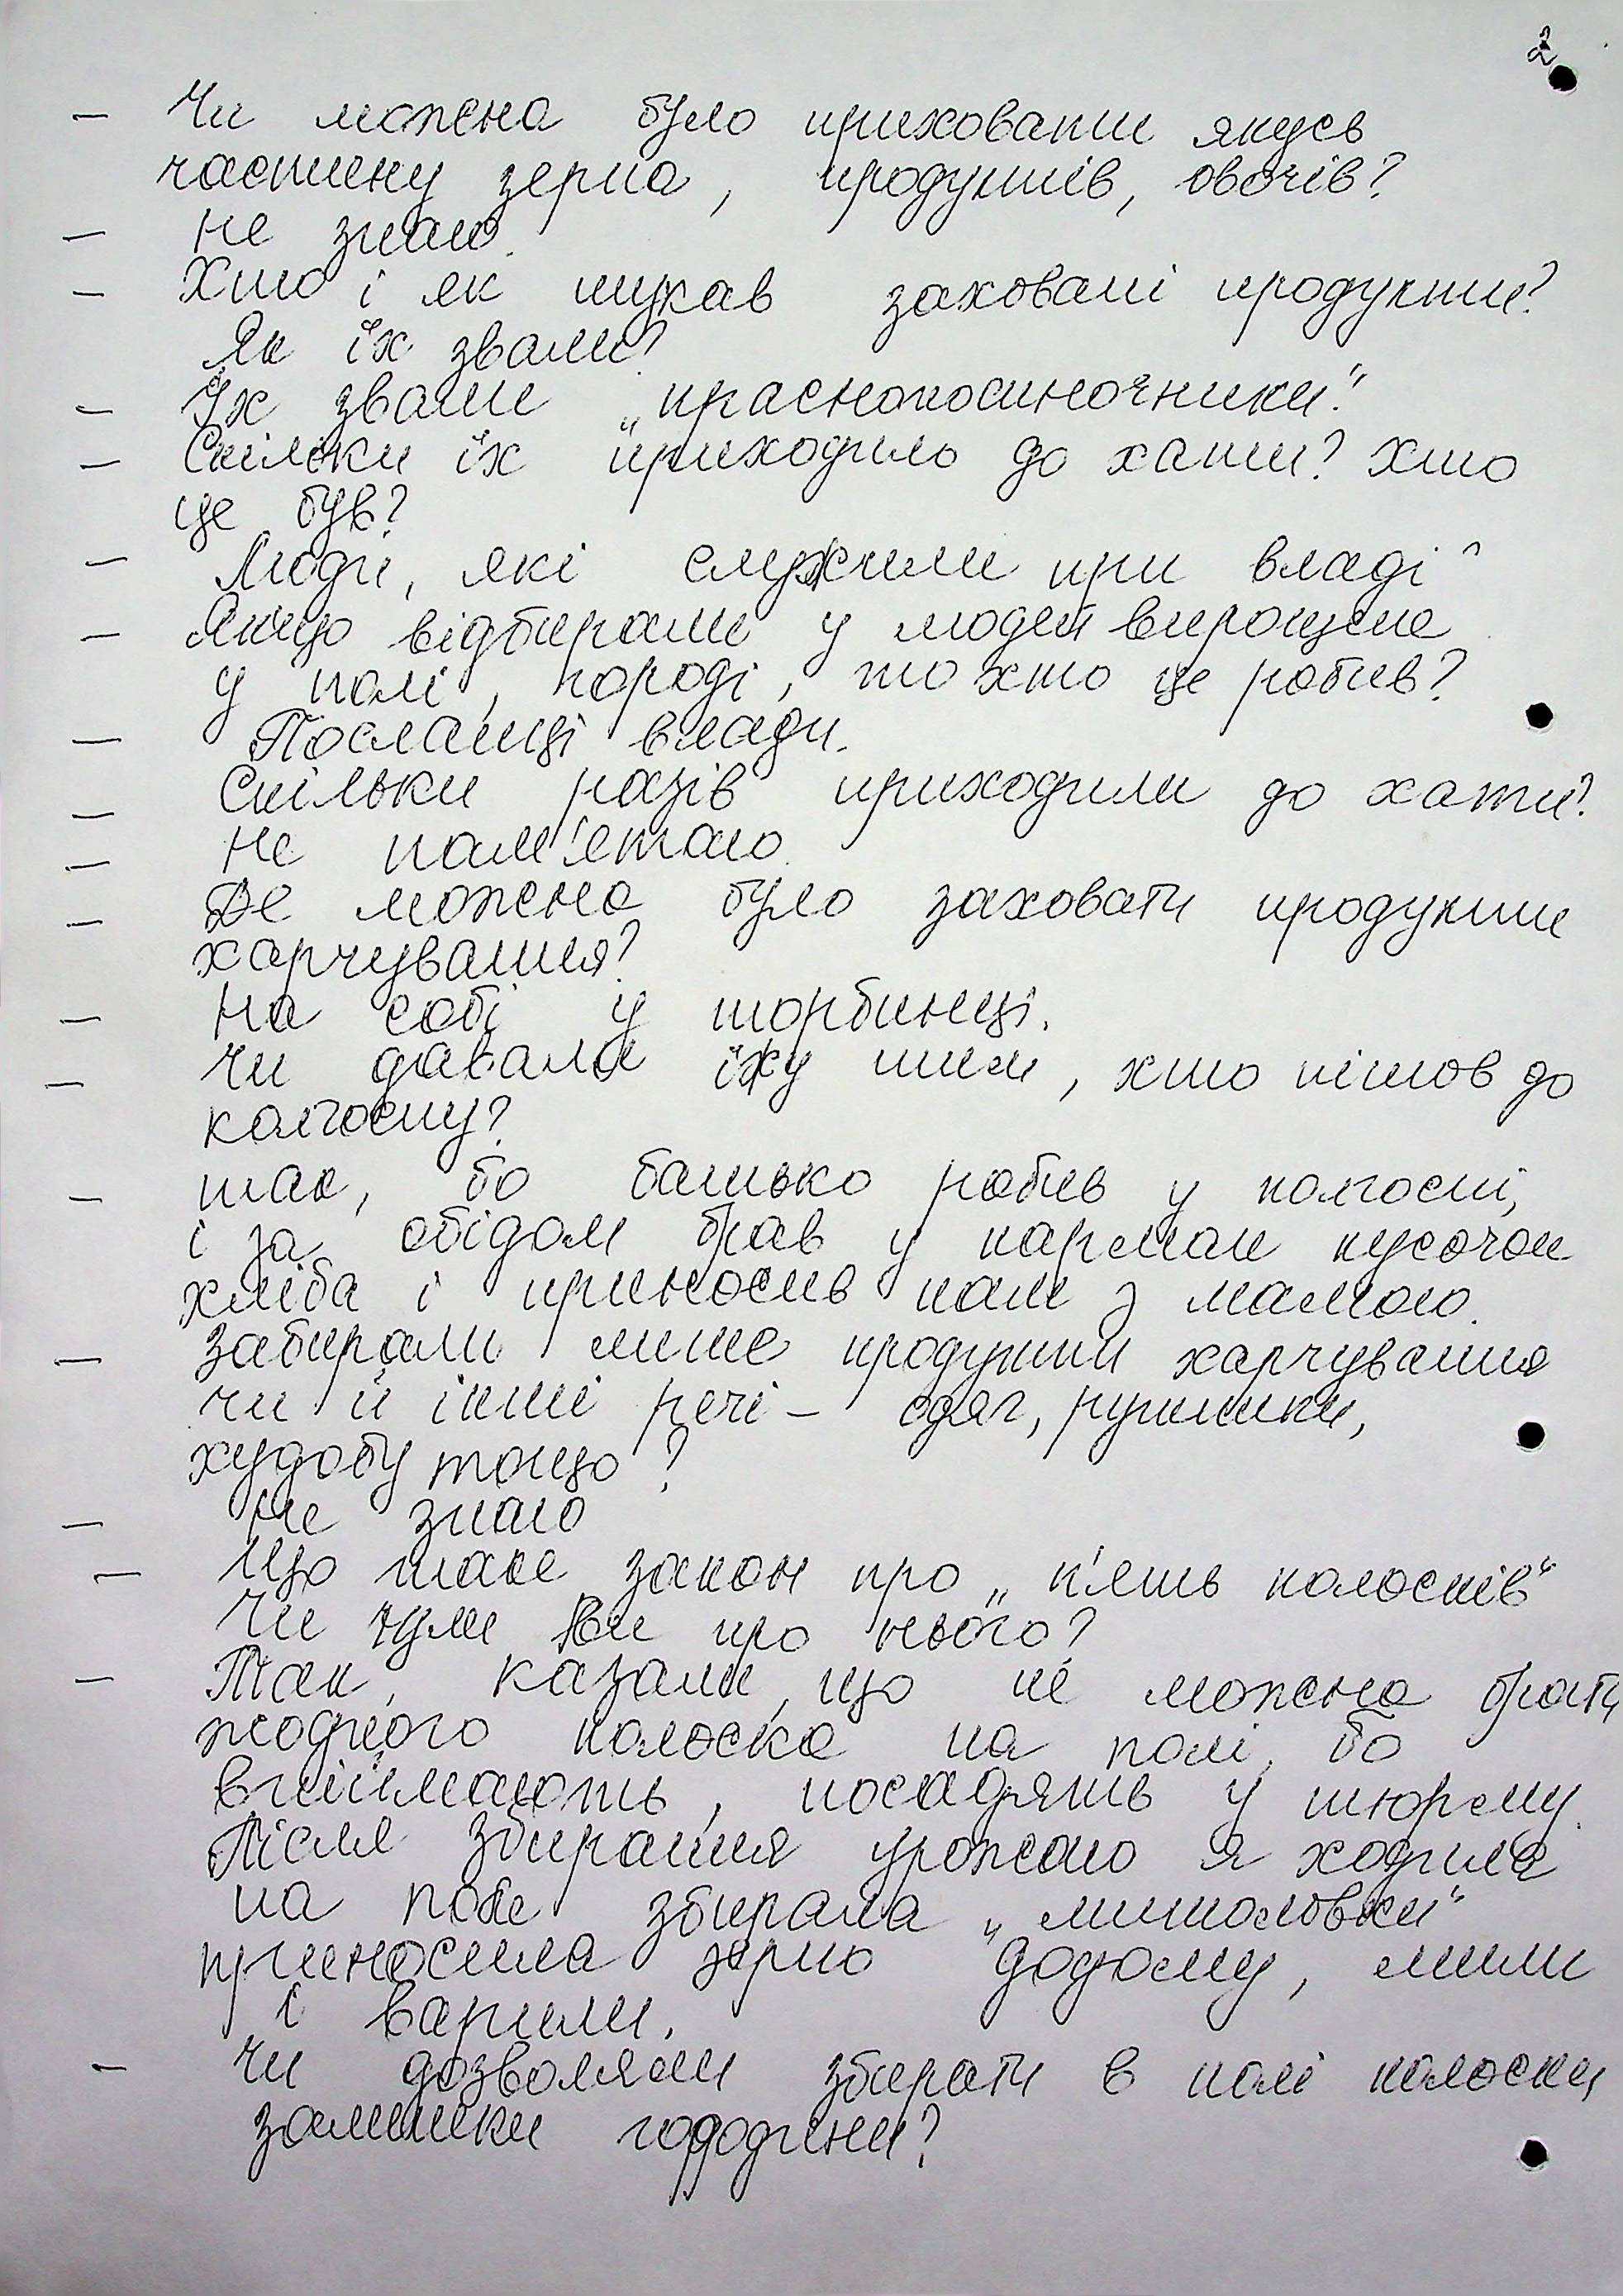 2
– Чи можна було приховати якусь
частину зерна, продуктів, овочів?
– Не знаю.
– Хто і як шукав заховані продукти?
Як їх звали?
– Їх звали „краснокосиночники".
– Скільки їх приходило до хати? Хто
це був?
– Люди, які служили при владі
– Якщо відбирали у людей вирощене
у полі, городі, то хто це робив?
– Посланці влади.
– Скільки разів приходили до хати?
– Не пам'ятаю.
– Де можна було заховати продукти
харчування?
– На собі у торбинці.
– Чи давали їжу тим, хто пішов до
колгоспу?
– так, бо батько робив у колгоспі,
і за обідом брав у карман кусочок
хліба і приносив нам з мамою.
– Забирали лише продукти харчування
чи й інші речі – одяг, рушники,
худобу тощо?
– Не знаю
– Що таке закон про „п'ять колосків"
Чи чули Ви про нього?
– Так, казали, що не можна брати
жодного колоска на полі, бо
впіймають, посадять у тюрму.
Після збирання урожаю я ходила
на поле збирала „мишоловки"
приносила зерно додому, мили
і варили.
– Чи дозволяли збирати в полі колоски
залишки городини?